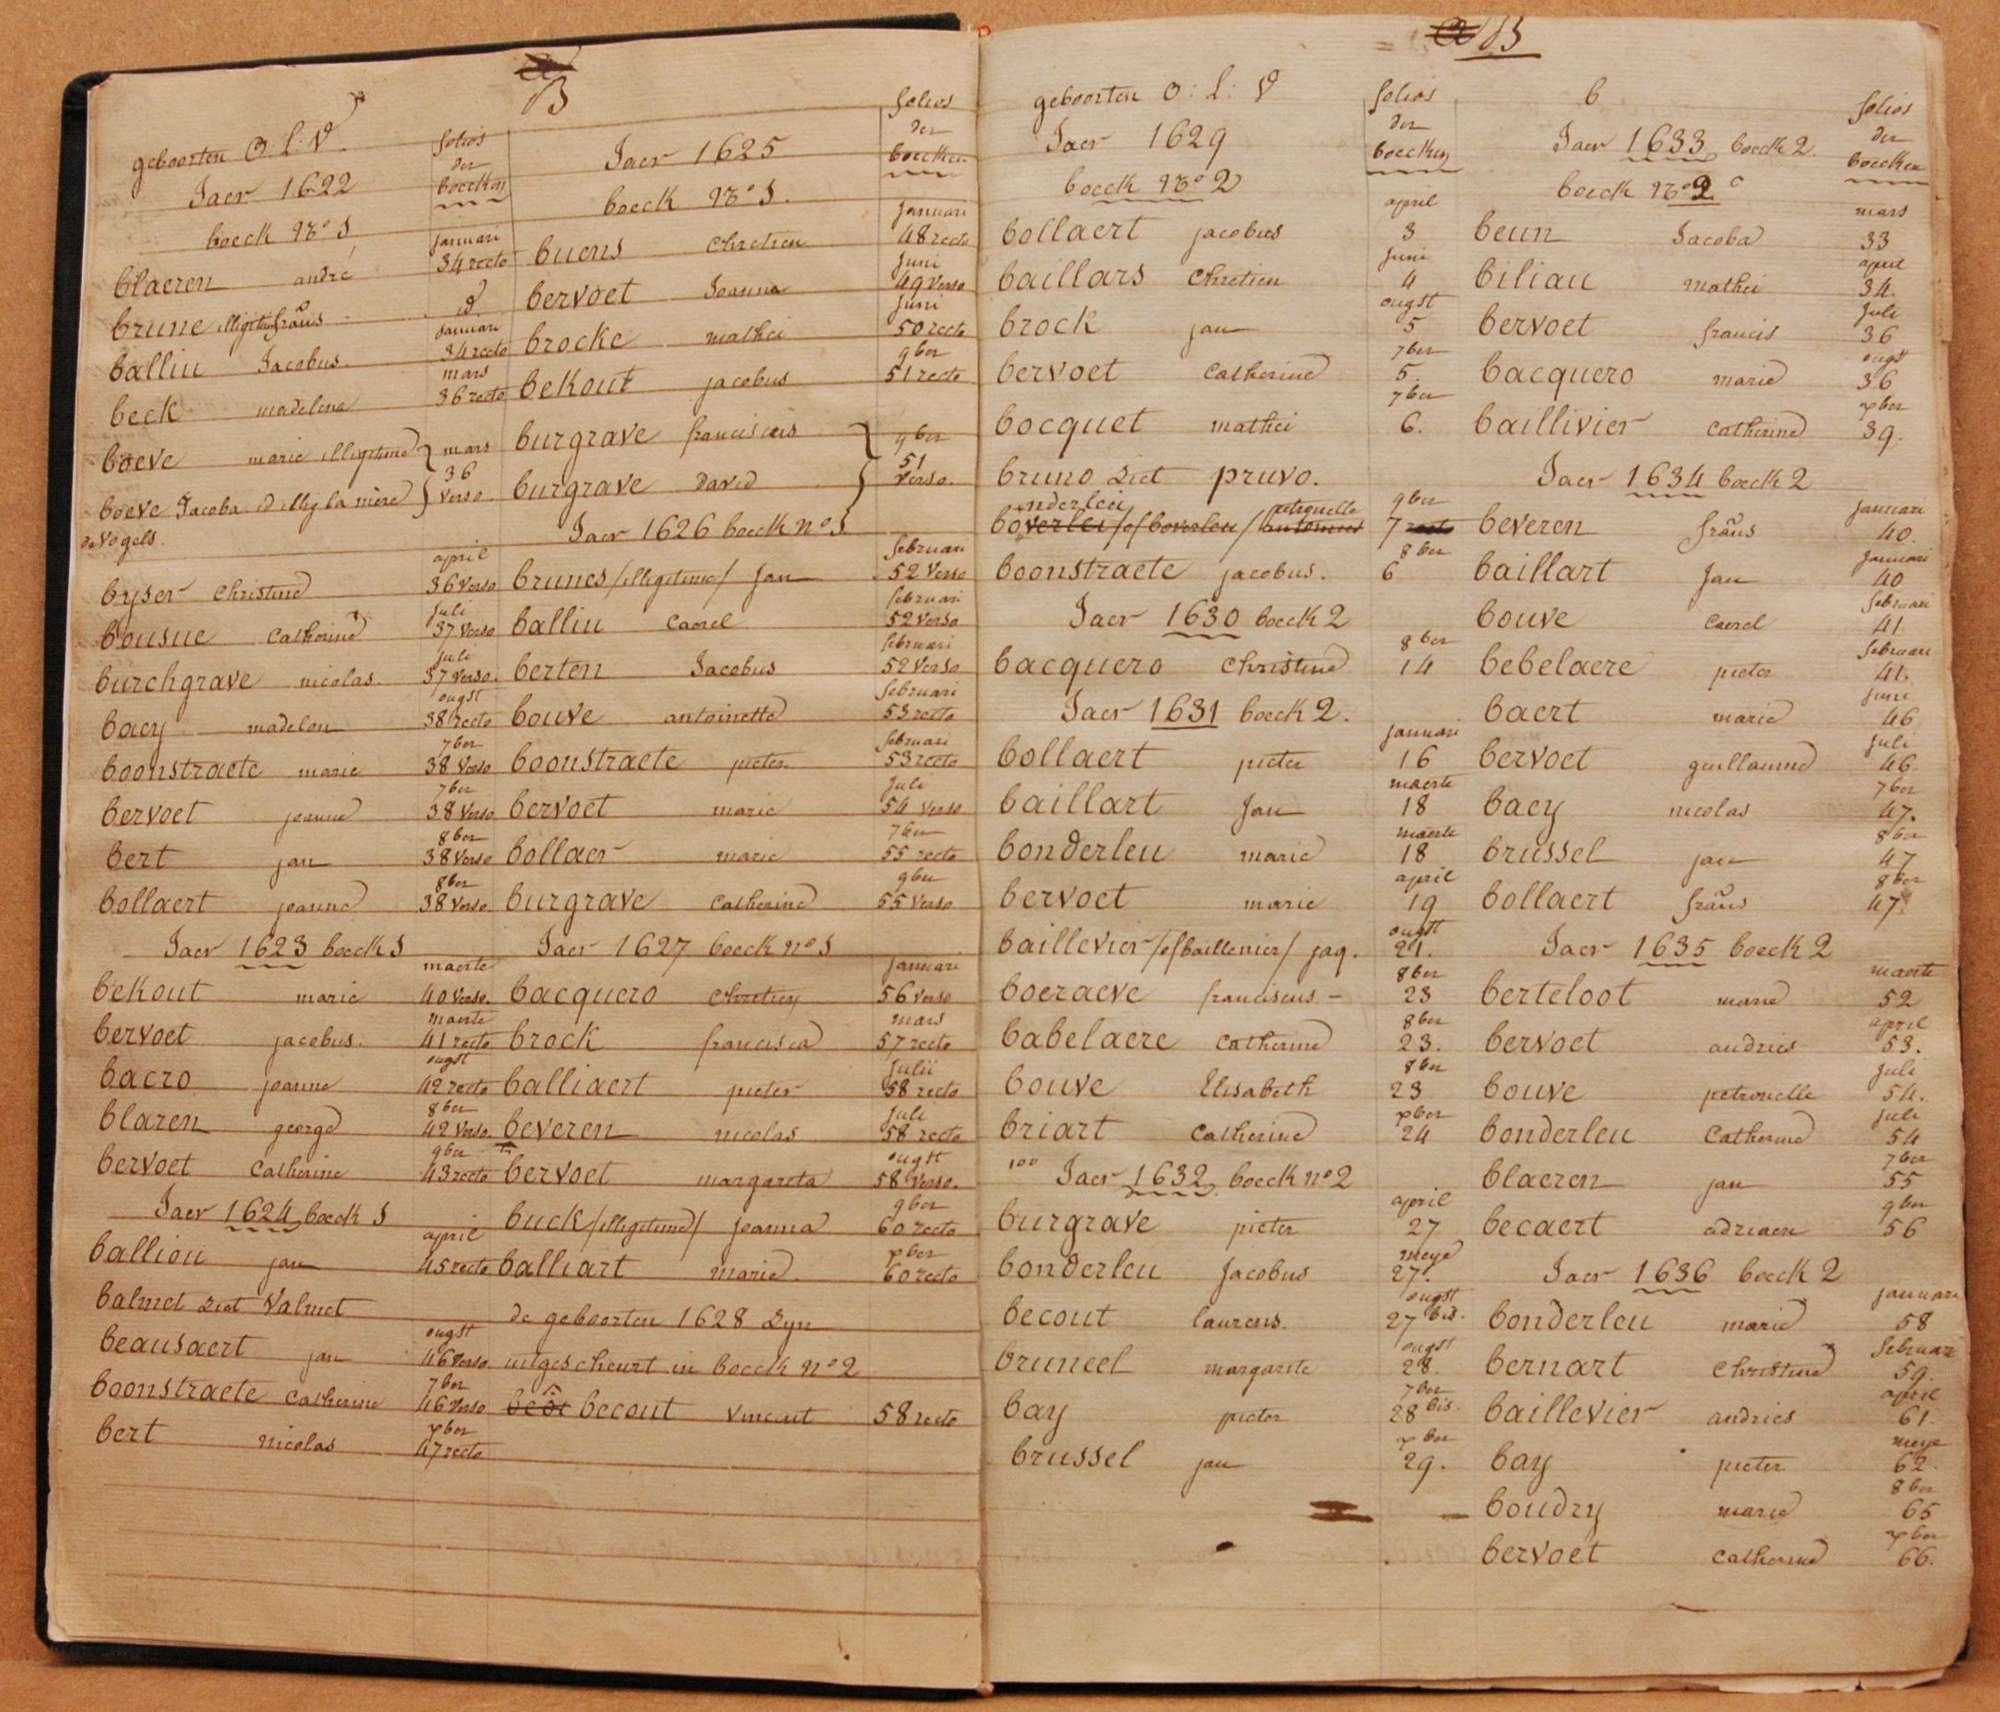 B
geboorten O: L: V.
folios
der
boecken
Jaer 1622
boeck No 1
januari
blaeren andré 34 recto
brune illigitime frans d
januari
balliu Jacobus 34 recto
mars
beck madelena 36 recto
boeve marie illigitime } mars
36
boeve Jacoba id illig la mère } verso
de vogels.
april
byser Christine 36 verso
juli
bousue Catherine 37 verso
juli
burchgrave nicolas. 37 verso.
ougst
baey madelon 38 recto
7ber
boonstraete marie 38 verso
7ber
bervoet jeanne 38 verso
8ber
bert jan 38 verso
8ber
bollaert jeanne 38 verso
Jaer 1623 boeck 1
maerte
bekout marie 40 verso.
maerte
bervoet jacobus. 41 recto
ougst
bacro jeanne 42 recto
8ber
blaren george 42 verso.
9ber
bervoet Catherine 43 recto
Jaer 1624 boeck 1
april
balliou jan 45 recto
balmet ziet Valmet
ougst
beausaert jan 46 verso
7ber
boonstraete Catherine 46 verso
xber
bert nicolas 47 recto
folios
der
boecken
Jaer 1625
boeck No 1.
januari
buens Chretien 48 recto
juni
bervoet Joanna 49 verso
juni
brocke mathei 50 recto
9ber
bekout jacobus 51 recto
burgrave franciscus } 9ber
51
burgrave david } verso.
Jaer 1626 boeck no 1
februari
brunes /illigitime/ Jan 52 verso
februari
balliu Caerel 52 verso
februari
berten Jacobus 52 verso
februari
bouve antoinette 53 recto
februari
boonstraete pieter 53 recto
juli
bervoet marie 54 verso
7ber
bollaer marie 55 recto
9ber
burgrave Catherine 55 verso
Jaer 1627 boeck no 1
januari
bacquero Chretien 56 verso
mars
brock francisca 57 recto
julii
balliaert pieter 58 recto
juli
beveren nicolas 58 recto
ougst
bervoet margareta 58 verso.
9ber
buck /illigitime/ joanna 60 recto
xber
balliart marie 60 recto
de geboorten 1628 zyn
uitgescheurt in boeck no 2
becout vincant 58 recto
B
geboorten O: L: V
folios
der
boecken
Jaer 1629
boeck No 2
april
bollaert jacobus 3
juni
baillars Chretien 4
ougst
brock jan 5
7ber
bervoet Catherine 5.
7ber
bocquet mathei 6.
bruno ziet pruvo.
onderleu petronelle 9ber
boverlei /of boverleu/ antonius 7 recto
8ber
boonstraete jacobus. 6
Jaer 1630 boeck 2
8ber
bacquero Christine 14
Jaer 1631 boeck 2.
januari
bollaert pieter 16
maerte
baillart Jan 18
maerte
bonderleu marie 18
april
bervoet marie 19
ougst
baillevier /of baillenier/ jaq. 21.
8ber
boeraeve franciscus - 23
8ber
babelaere Catherine 23.
8ber
bouve Elisabeth 23
xber
briart Catherine 24
Jaer 1632 boeck no 2
april
burgrave pieter 27
meye
bonderleu Jacobus 27.
ougst
becout laurens. 27 bis.
ougst
bruneel margarite 28.
7ber
bay pieter 28 bis.
xber
brussel jan 29.
b
folios
der
boecken
Jaer 1633 boeck 2.
boeck No 2
mars
beun Jacoba 33
april
biliau mathei 34.
juli
bervoet francis 36
ougst
bacquero marie 36
xber
baillivier Catherine 39.
Jaer 1634 boeck 2
januari
beveren frans 40.
januari
baillart Jan 40
februari
bouve Caerel 41
februari
bebelaere pieter 41.
juni
baert marie 46
juli
bervoet guillaume 46
7ber
baey nicolas 47.
8ber
brussel jan 47
8ber
bollaert frans 47.
Jaer 1635 boeck 2
maerte
berteloot marie 52
april
bervoet andries 53.
juli
bouve petronelle 54.
juli
bonderleu Catherine 54
7ber
blaeren jan 55
9ber
becaert adriaen 56
Jaer 1636 boeck 2
januari
bonderleu marie 58
februari
bernart Christine 59.
april
baillevier andries 61.
meye
bay pieter 62.
8ber
boudry marie 65
xber
bervoet Catherine 66.